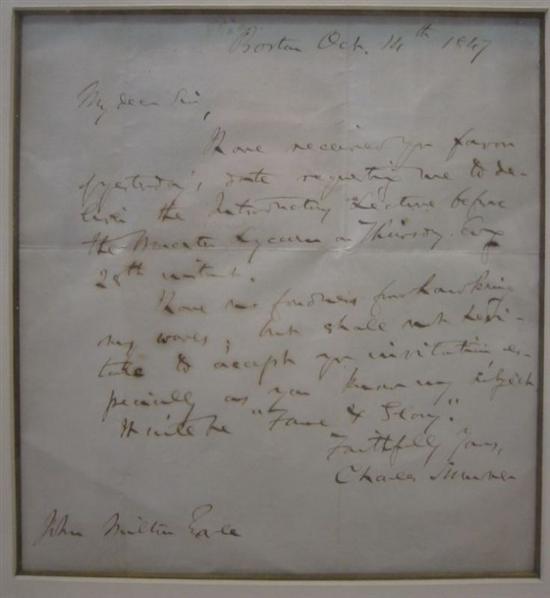 Boston Oct. 14th 1847
My dear Sir,
Have received yr favor
of yesterday's date requesting me to de-
liver the Introductory Lecture before
the Lyceum on Thursday. Evg
28th instant.
Have no fondness for hawking
my wares; but shall not hesi-
tate to accept yr invitation, es-
pecially as you know my subject
It will be "Fame & Glory."
Faithfully Yours,
Charles Sumner
John Milton Earle